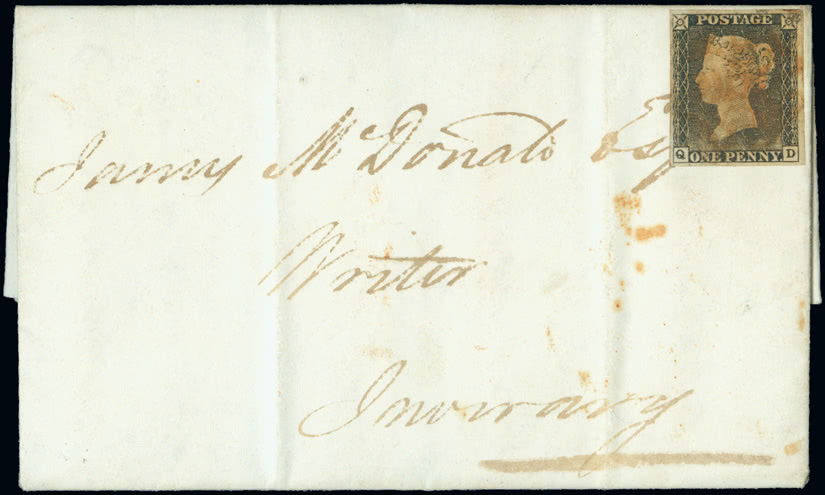 POSTAGE
Q ONE PENNY D
James McDonald Esq
Writer
Inveraray